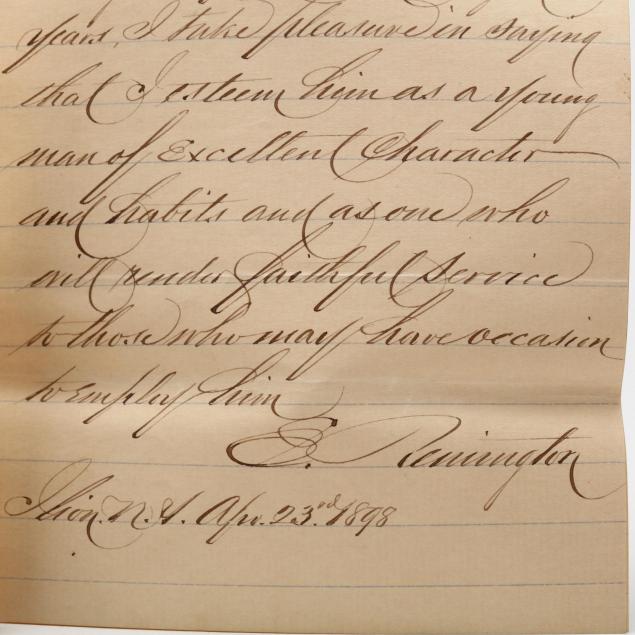 years, I take pleasure in saying
that I esteem him as a young
man of Excellent Character
and habits and as one who
will render faithful Service
to those who may have occasion
to employ him
E. Remington
Ilion. N.Y. Apr. 23rd. 1898